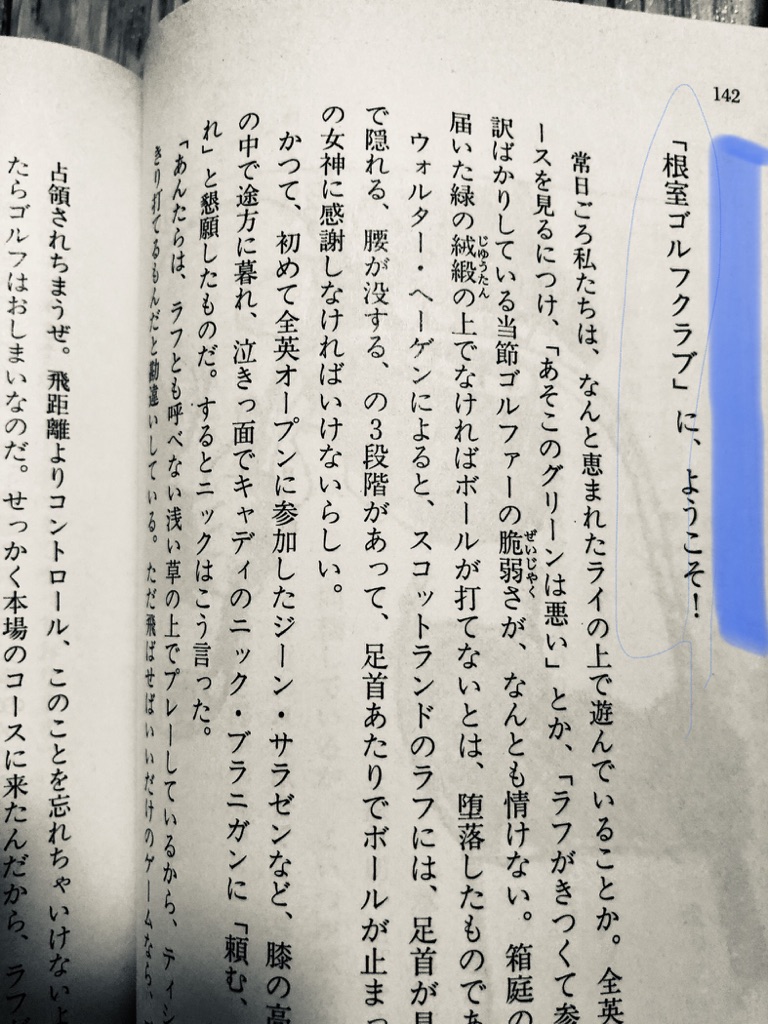 142
「根室ゴルフクラブ」に、ようこそ！
常日ごろ私たちは、なんと恵まれたライの上で遊んでいることか。全英
ースを見るにつけ、「あそこのグリーンは悪い」とか、「ラフがきつくて参
訳ばかりしている当節ゴルファーの脆弱さが、なんとも情けない。箱庭の
ぜいじゃく
届いた緑の絨緞の上でなければボールが打てないとは、堕落したものであ
じゆうたん
ウォルター・ヘーゲンによると、スコットランドのラフには、足首が見
で隠れる、腰が没する、の3段階があって、足首あたりでボールが止まっ
の女神に感謝しなければいけないらしい。
かつて、初めて全英オープンに参加したジーン・サラゼンなど、膝の高
の中で途方に暮れ、泣きっ面でキャディのニック・ブラニガンに「頼む、
れ」と懇願したものだ。するとニックはこう言った。
「あんたらは、ラフとも呼べない浅い草の上でプレーしているから、ティシ
きり打てるもんだと勘違いしている。ただ飛ばせばいいだけのゲームなら、
占領されちまうぜ。飛距離よりコントロール、このことを忘れちゃいけないよ
たらゴルフはおしまいなのだ。せっかく本場のコースに来たんだから、ラフ